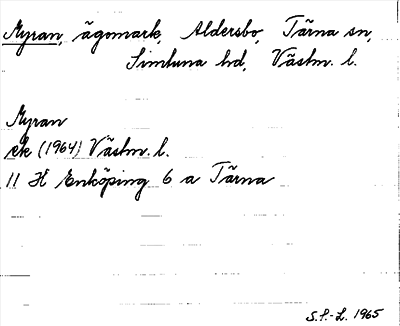 Myran, ägomark, Aldersbo, Tärna sn,
Simtuna hd, Västm. l.
Myran
ek (1964) Västm. l.
11 H Enköping 6 a Tärna
S.P.-L. 1965